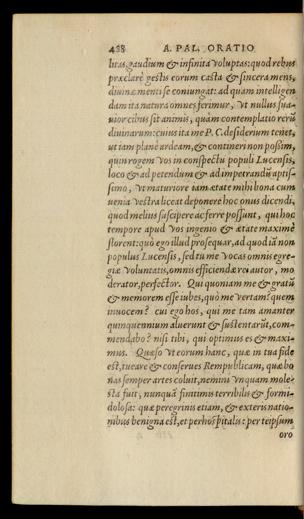 438 A. PAL. ORATIO
litas, gaudium & infinita voluptas: quod rebus
præclarè gestis eorum casta & sincera mens,
diuinæ menti se coniungat: ad quam intelligen
dam ita natura omnes ferimur, vt nullus sua-
uior cibus sit animis, quàm contemplatio rerū
diuinarum: cuius ita me P. C. desiderium tenet,
ut iam planè ardeam, & contineri non possim,
quin rogem vos in conspectu populi Lucensis,
loco & ad petendum & ad impetrandū aptis-
simo, vt maturiore iam ætate mihi bona cum
uenia vestra liceat deponere hoc onus dicendi,
quod melius suscipere ac ferre possunt, qui hoc
tempore apud vos ingenio & ætate maximè
florent: quò ego illud prosequar, ad quod iā non
populus Lucensis, sed tu me vocas omnis egre-
giæ voluntatis, omnis efficiendæ rei autor, mo
derator, perfector. Qui quoniam me & gratū
& memorem esse iubes, quò me vertam? quem
inuocem? cui ego hos, qui me tam amanter
quinquennium aluerunt & sustentarūt, com-
mendabo? nisi tibi, qui optimus es & maxi-
mus. Quæso vt eorum hanc, quæ in tua fide
est, tueare & conserues Rempublicam, quæ bo
nas semper artes coluit, nemini vnquam mole-
sta fuit, nunquā finitimis terribilis & formi-
dolosa: quæ peregrinis etiam, & exteris natio-
nibus benigna est, et perhospitalis: per teipsum
oro